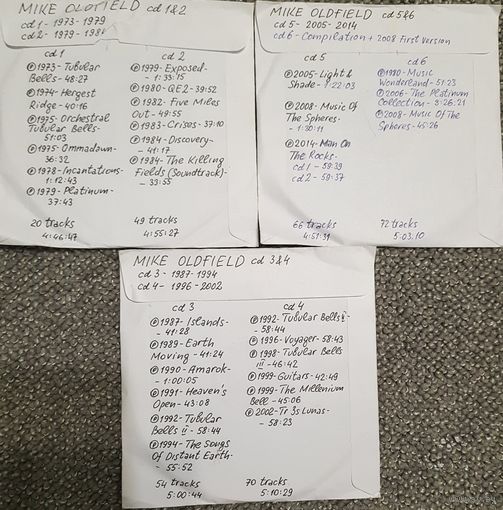 MIKE OLDFIELD cd 1&2
cd 1 - 1973 - 1979
cd 2 - 1979 - 1984
cd 1
℗1973 - Tubular
Bells - 48:27
℗1974 - Hergest
Ridge - 40:16
℗1975 - Orchestral
Tubular Bells -
51:03
℗1975 - Ommadawn -
36:32
℗1978 - Incantations -
1:12:43
℗1979 - Platinum -
37:43
20 tracks
4:46:47
cd 2
℗1979 - Exposed -
- 1:33:15
℗1980 - QE2 - 39:52
℗1982 - Five Miles
Out - 49:55
℗1983 - Crises - 37:10
℗1984 - Discovery -
- 41:17
℗1984 - The Killing
Fields (Soundtrack) -
- 33:55
49 tracks
4:55:27
MIKE OLDFIELD cd 5&6
cd 5 - 2005 - 2014
cd 6 - Compilation + 2008 First Version
cd 5
℗2005 - Light &
Shade - 1:22:03
℗2008 - Music Of
The Spheres -
- 1:30:11
℗2014 - Man On
The Rocks -
cd 1 - 59:39
cd 2 - 59:37
66 tracks
4:51:31
cd 6
℗1980 - Music
Wonderland - 51:23
℗2006 - The Platinum
Collection - 3:26:21
℗2008 - Music Of The
Spheres - 45:26
72 tracks
5:03:10
MIKE OLDFIELD cd 3&4
cd 3 - 1987 - 1994
cd 4 - 1996 - 2002
cd 3
℗1987 - Islands -
- 41:28
℗1989 - Earth
Moving - 41:24
℗1990 - Amarok -
- 1:00:05
℗1991 - Heaven's
Open - 43:08
℗1992 - Tubular
Bells II - 58:44
℗1994 - The Songs
Of Distant Earth -
- 55:52
54 tracks
5:00:44
cd 4
℗1992 - Tubular Bells II -
- 58:44
℗1996 - Voyager - 58:43
℗1998 - Tubular Bells
III - 46:42
℗1999 - Guitars - 42:49
℗1999 - The Millenium
Bell - 45:06
℗2002 - Tr3s Lunas -
- 58:23
70 tracks
5:10:29